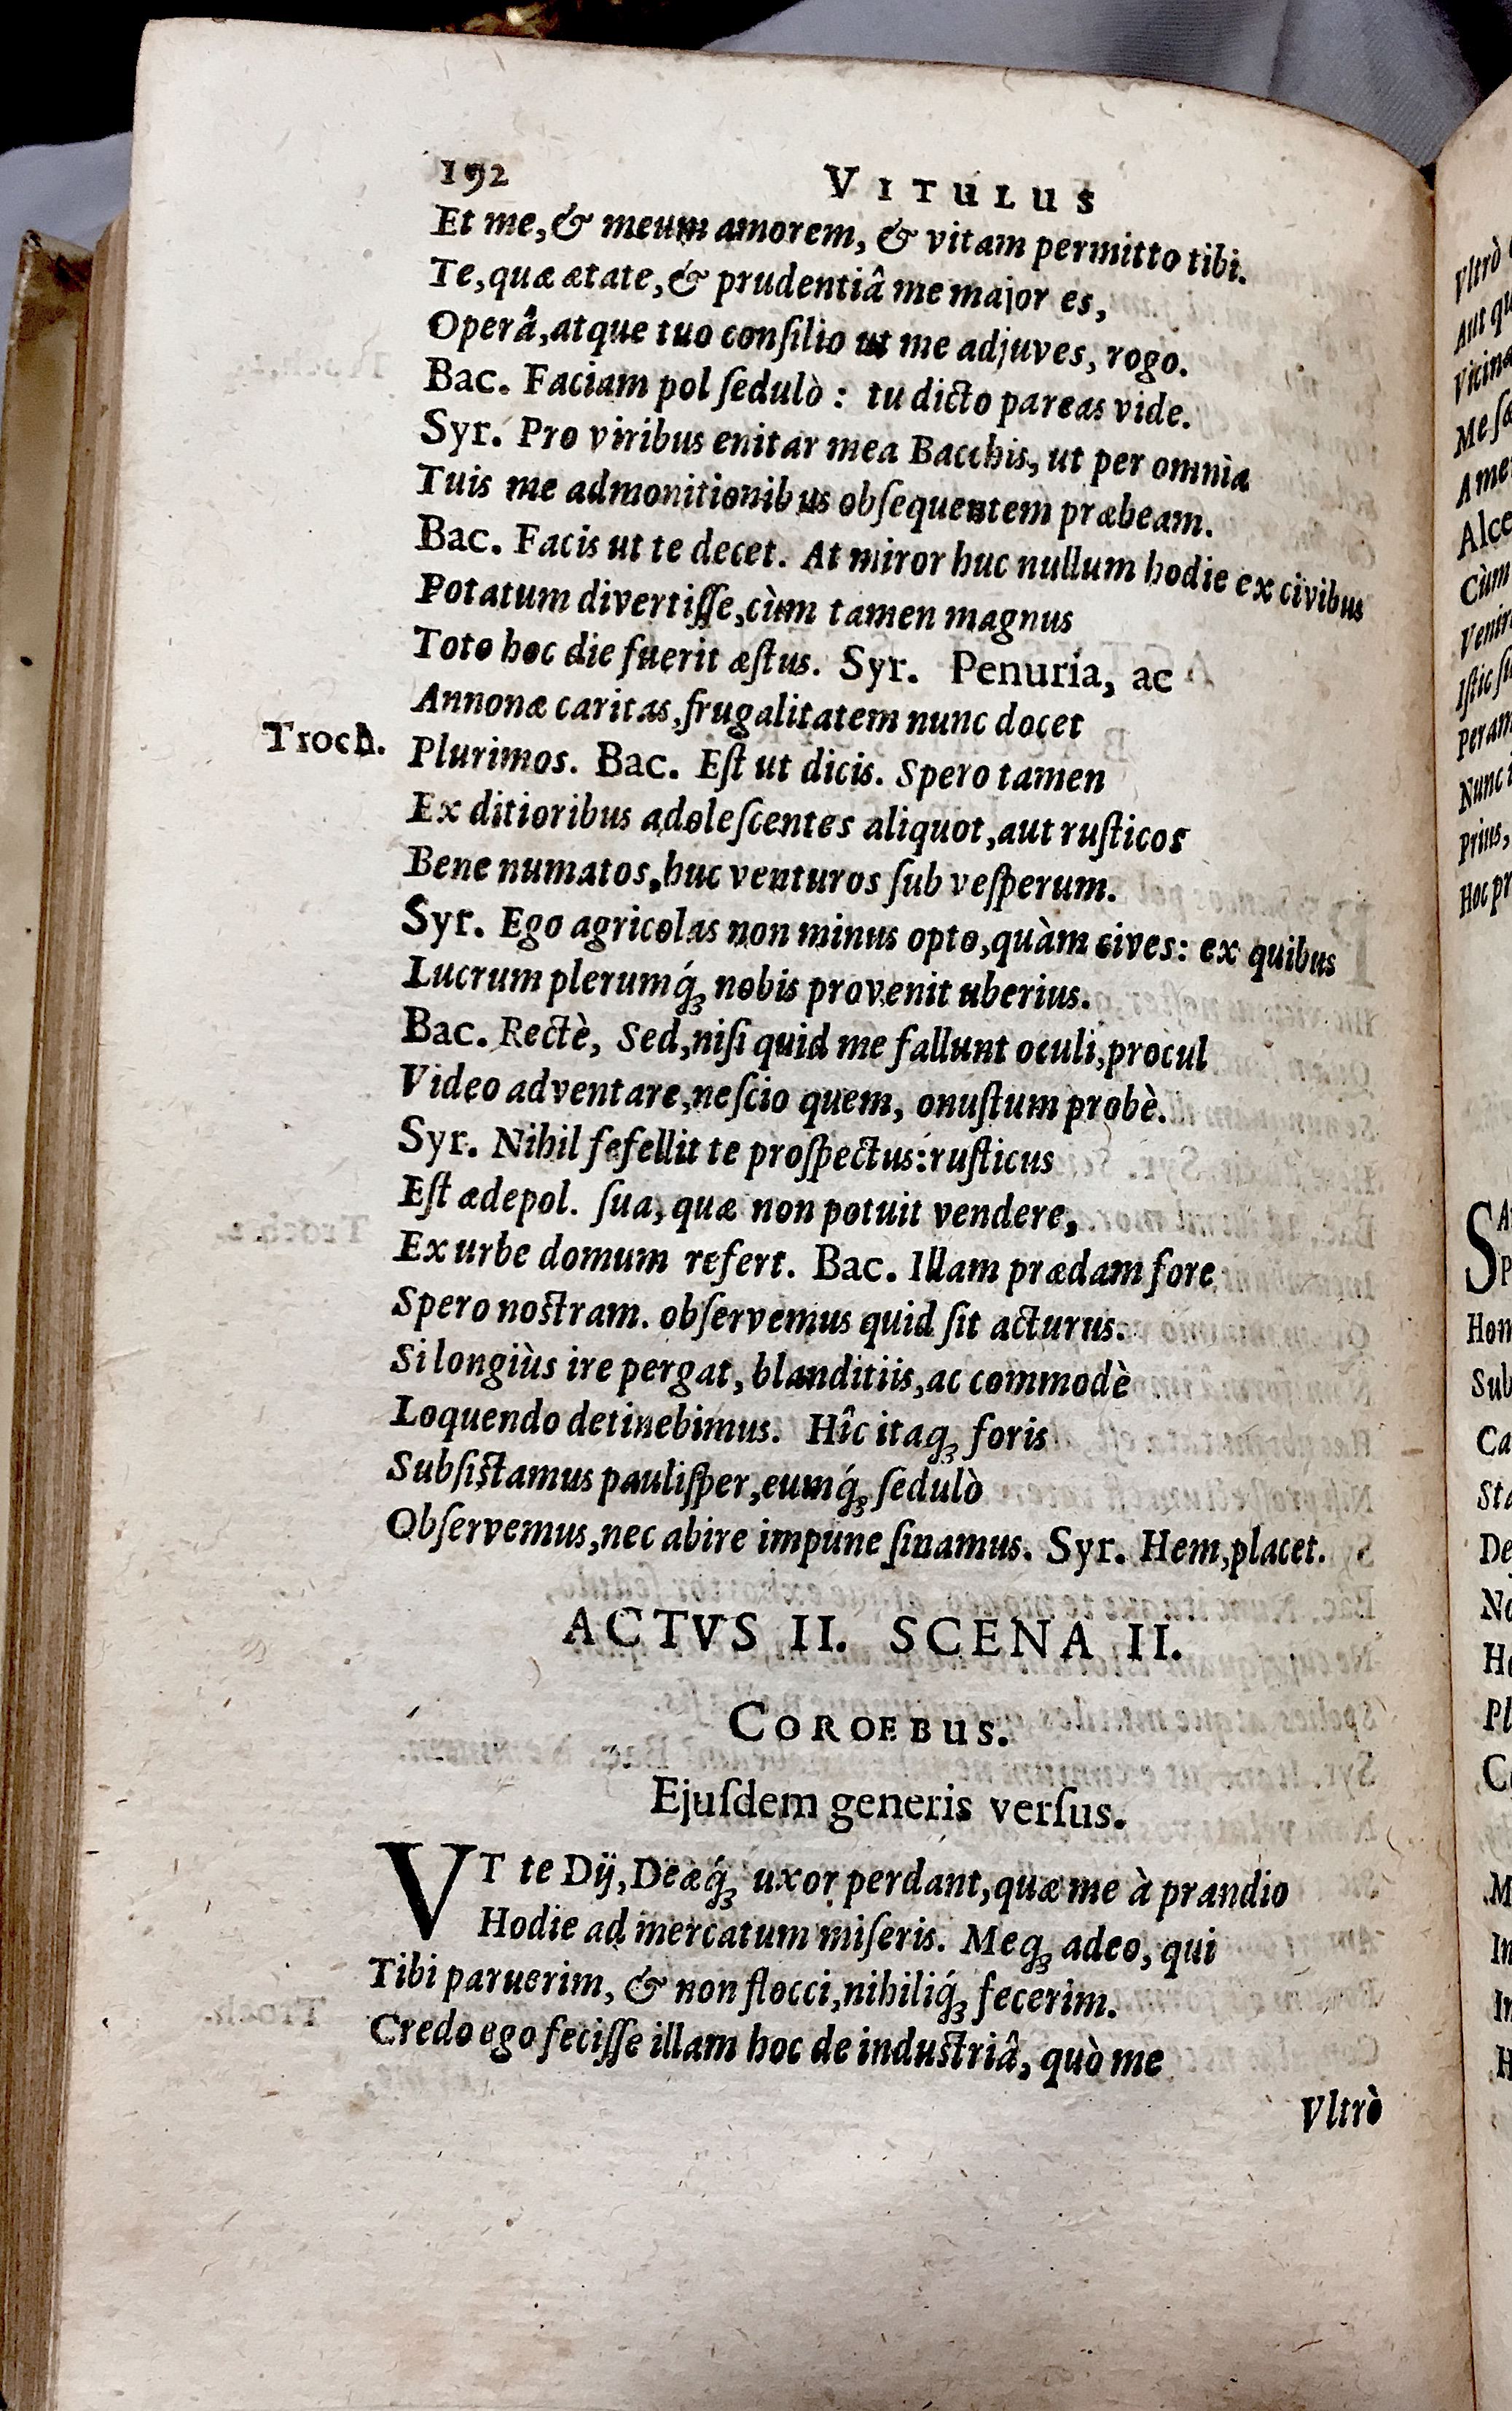 192 VITULUS
Et me, & meum amorem, & vitam permitto tibi.
Te, quæ ætate, & prudentiâ me major es,
Operâ, atque tuo conſilio ut me adjuves, rogo.
Bac. Faciam pol ſedulò : tu dicto pareas vide.
Syr. Pro viribus enitar mea Bacchis, ut per omnia
Tuis me admonitionibus obſequentem præbeam.
Bac. Facis ut te decet. At miror huc nullum hodie ex civibus
Potatum divertiſſe, cùm tamen magnus
Toto hoc die fuerit æſtus. Syr. Penuria, ac
Annonæ caritas, frugalitatem nunc docet
Troch. Plurimos. Bac. Eſt ut dicis. Spero tamen
Ex ditioribus adoleſcentes aliquot, aut ruſticos
Bene numatos, huc venturos ſub veſperum.
Syr. Ego agricolas non minus opto, quàm cives: ex quibus
Lucrum plerumq́ꝫ nobis provenit uberius.
Bac. Rectè, Sed, niſi quid me fallunt oculi, procul
Video adventare, neſcio quem, onuſtum probè.
Syr. Nihil fefellit te proſpectus: ruſticus
Eſt ædepol. ſua, quæ non potuit vendere,
Ex urbe domum refert. Bac. Illam prædam fore
Spero noſtram. obſervemus quid ſit acturus.
Si longiùs ire pergat, blanditiis, ac commodè
Loquendo detinebimus. Hîc itaqꝫ foris
Subſiſtamus pauliſper, eumq́ꝫ ſedulò
Obſervemus, nec abire impune ſinamus. Syr. Hem, placet.
ACTVS II. SCENA II.
COROEBUS.
Ejuſdem generis verſus.
VT te Dij, Deæq́ꝫ uxor perdant, quæ me à prandio
Hodie ad mercatum miſeris. Meqꝫ adeo, qui
Tibi paruerim, & non flocci, nihiliq́ꝫ fecerim.
Credo ego feciſſe illam hoc de induſtriâ, quò me
Vltrò